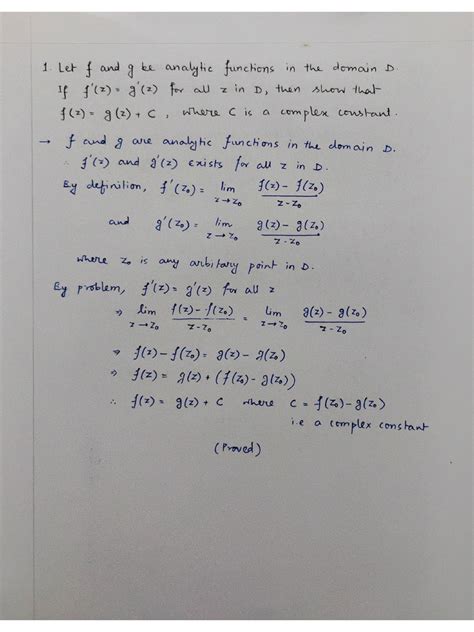 1. Let f and g be analytic functions in the domain D.
If f'(z) = g'(z) for all z in D, then show that
f(z) = g(z) + C, where C is a complex constant.
→ f and g are analytic functions in the domain D.
∴ f'(z) and g'(z) exists for all z in D.
By definition, f'(z₀) = lim z→z₀ (f(z) - f(z₀))/(z-z₀)
and g'(z₀) = lim z→z₀ (g(z) - g(z₀))/(z-z₀)
where z₀ is any arbitary point in D.
By problem, f'(z) = g'(z) for all z
⇒ lim z→z₀ (f(z) - f(z₀))/(z-z₀) = lim z→z₀ (g(z) - g(z₀))/(z-z₀)
⇒ f(z) - f(z₀) = g(z) - g(z₀)
⇒ f(z) = g(z) + (f(z₀) - g(z₀))
∴ f(z) = g(z) + C where C = f(z₀) - g(z₀)
i.e a complex constant
(Proved)